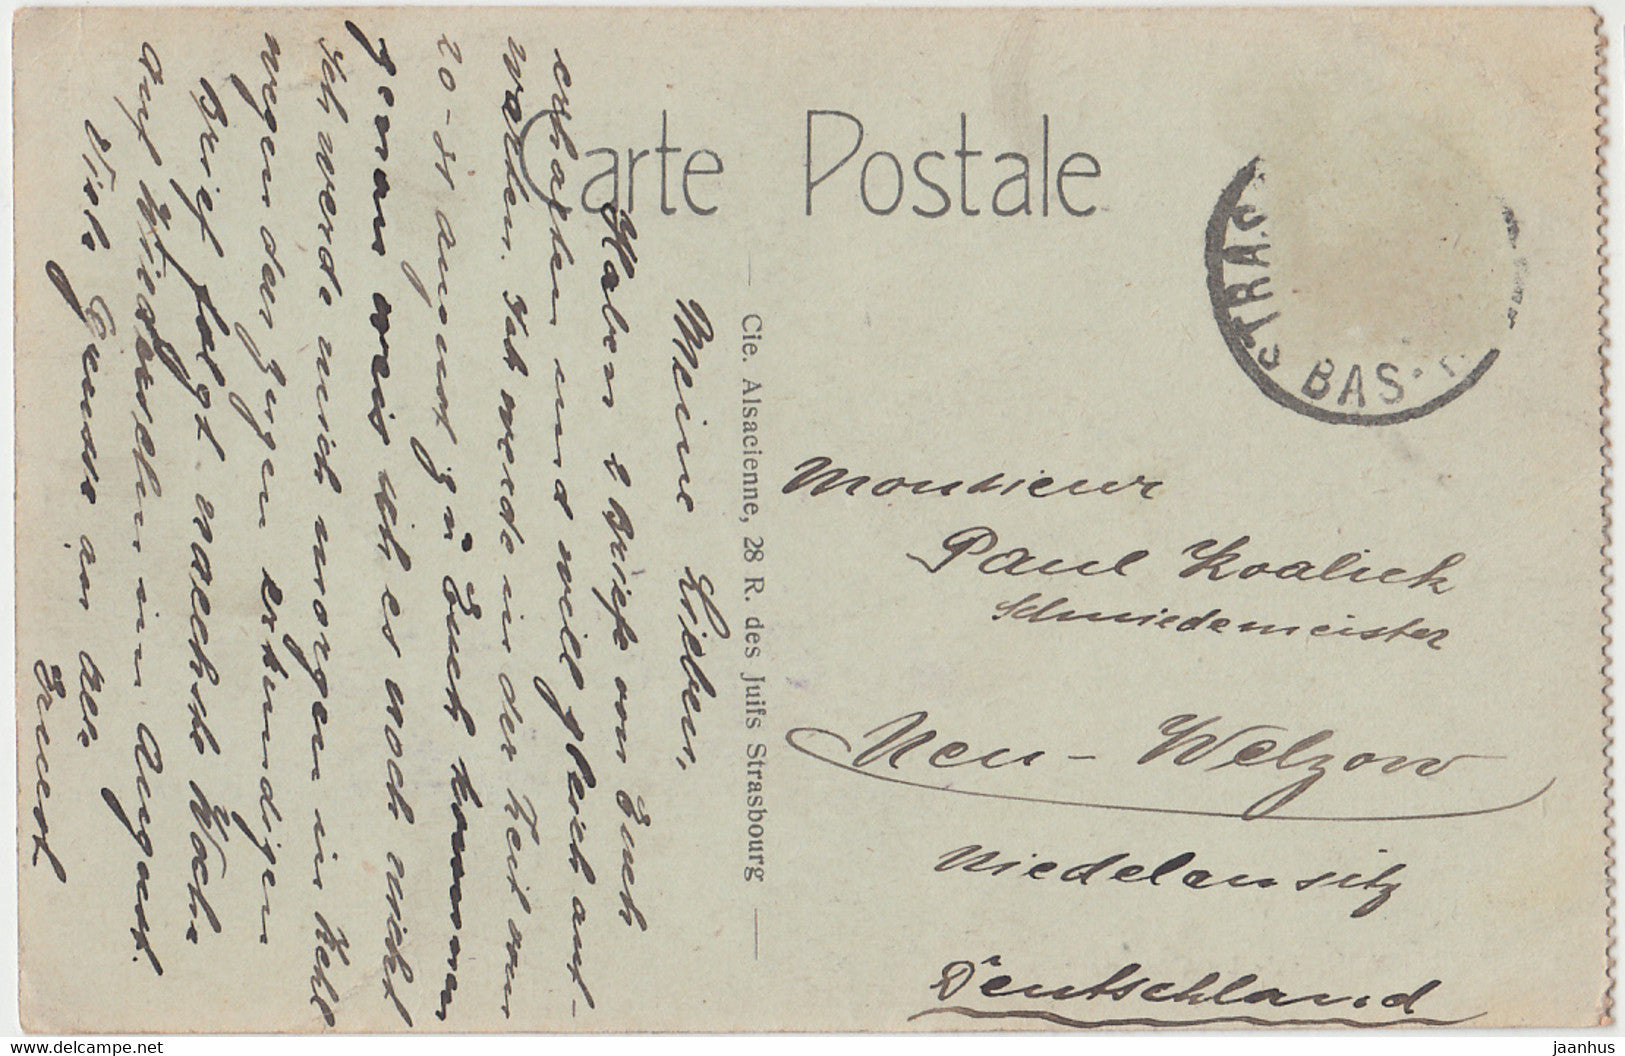 Carte Postale
STRAS
BAS-
Cie. Alsacienne, 28 R. des Juifs Strasbourg
Meine Lieben,
Haben 2 Briefe von Euch
erhalten und will gleich ant-
worten. Ich werde in der Zeit vom
20-31 August zu Euch kommen
genau weis ich es noch nicht
Ich werde mich morgen in Kehl
wegen der zügen erkundigen
Brief folgt naechste Woche
Auf Wiedersehen im August.
Viele Grüsse an alle
Ernest
Monsieur
Paul Koalick
Schmiedemeister
Neu-Welzow
Niedelausitz
Deutschland
www.delcampe.net
jaanhus